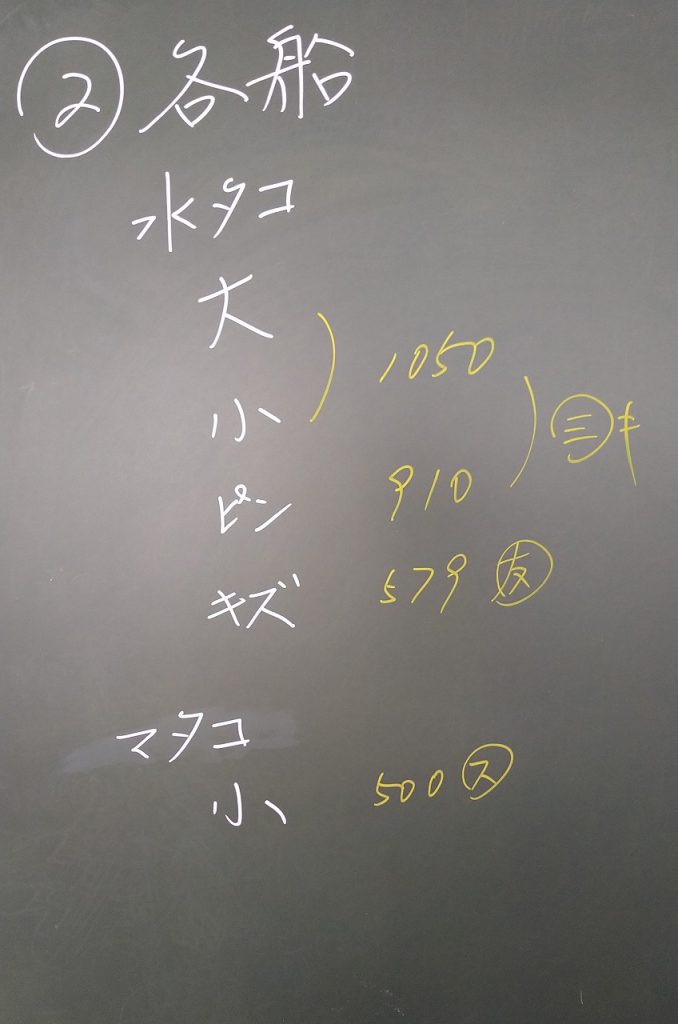 ② 各船
水タコ
大
小
1050
ピン 910 ㊂キ
キズ 579 友
マタコ
小 500 ス